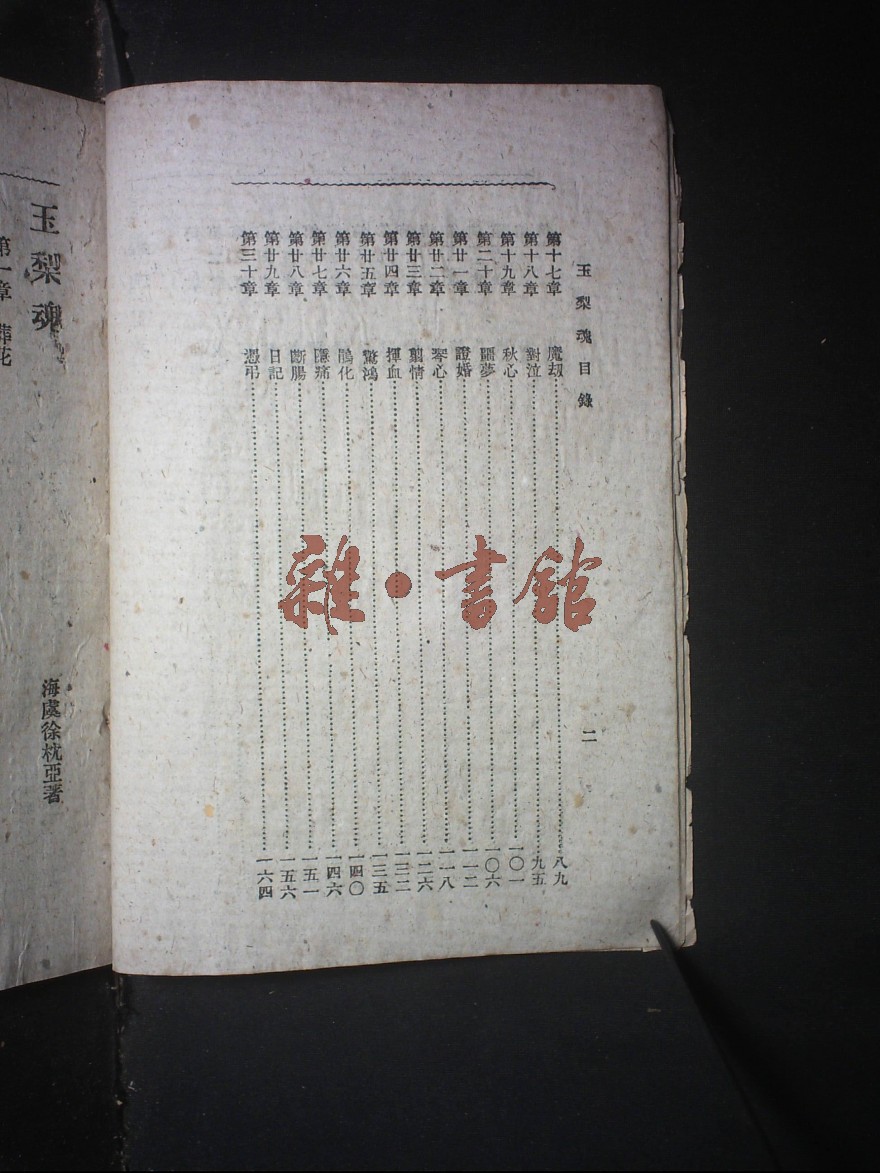 玉梨魂目錄
二
第十七章 魔刧 八九
第十八章 對泣 九五
第十九章 秋心 一〇一
第二十章 噩夢 一〇六
第廿一章 證婚 一一二
第廿二章 琴心 一一八
第廿三章 剪情 一二六
第廿四章 揮血 一三二
第廿五章 驚鴻 一三五
第廿六章 鵑化 一四〇
第廿七章 隱痛 一四六
第廿八章 斷腸 一五一
第廿九章 日記 一五六
第三十章 憑弔 一六四
玉梨魂
海虞徐枕亞著
第一章 葬花
雜·書館